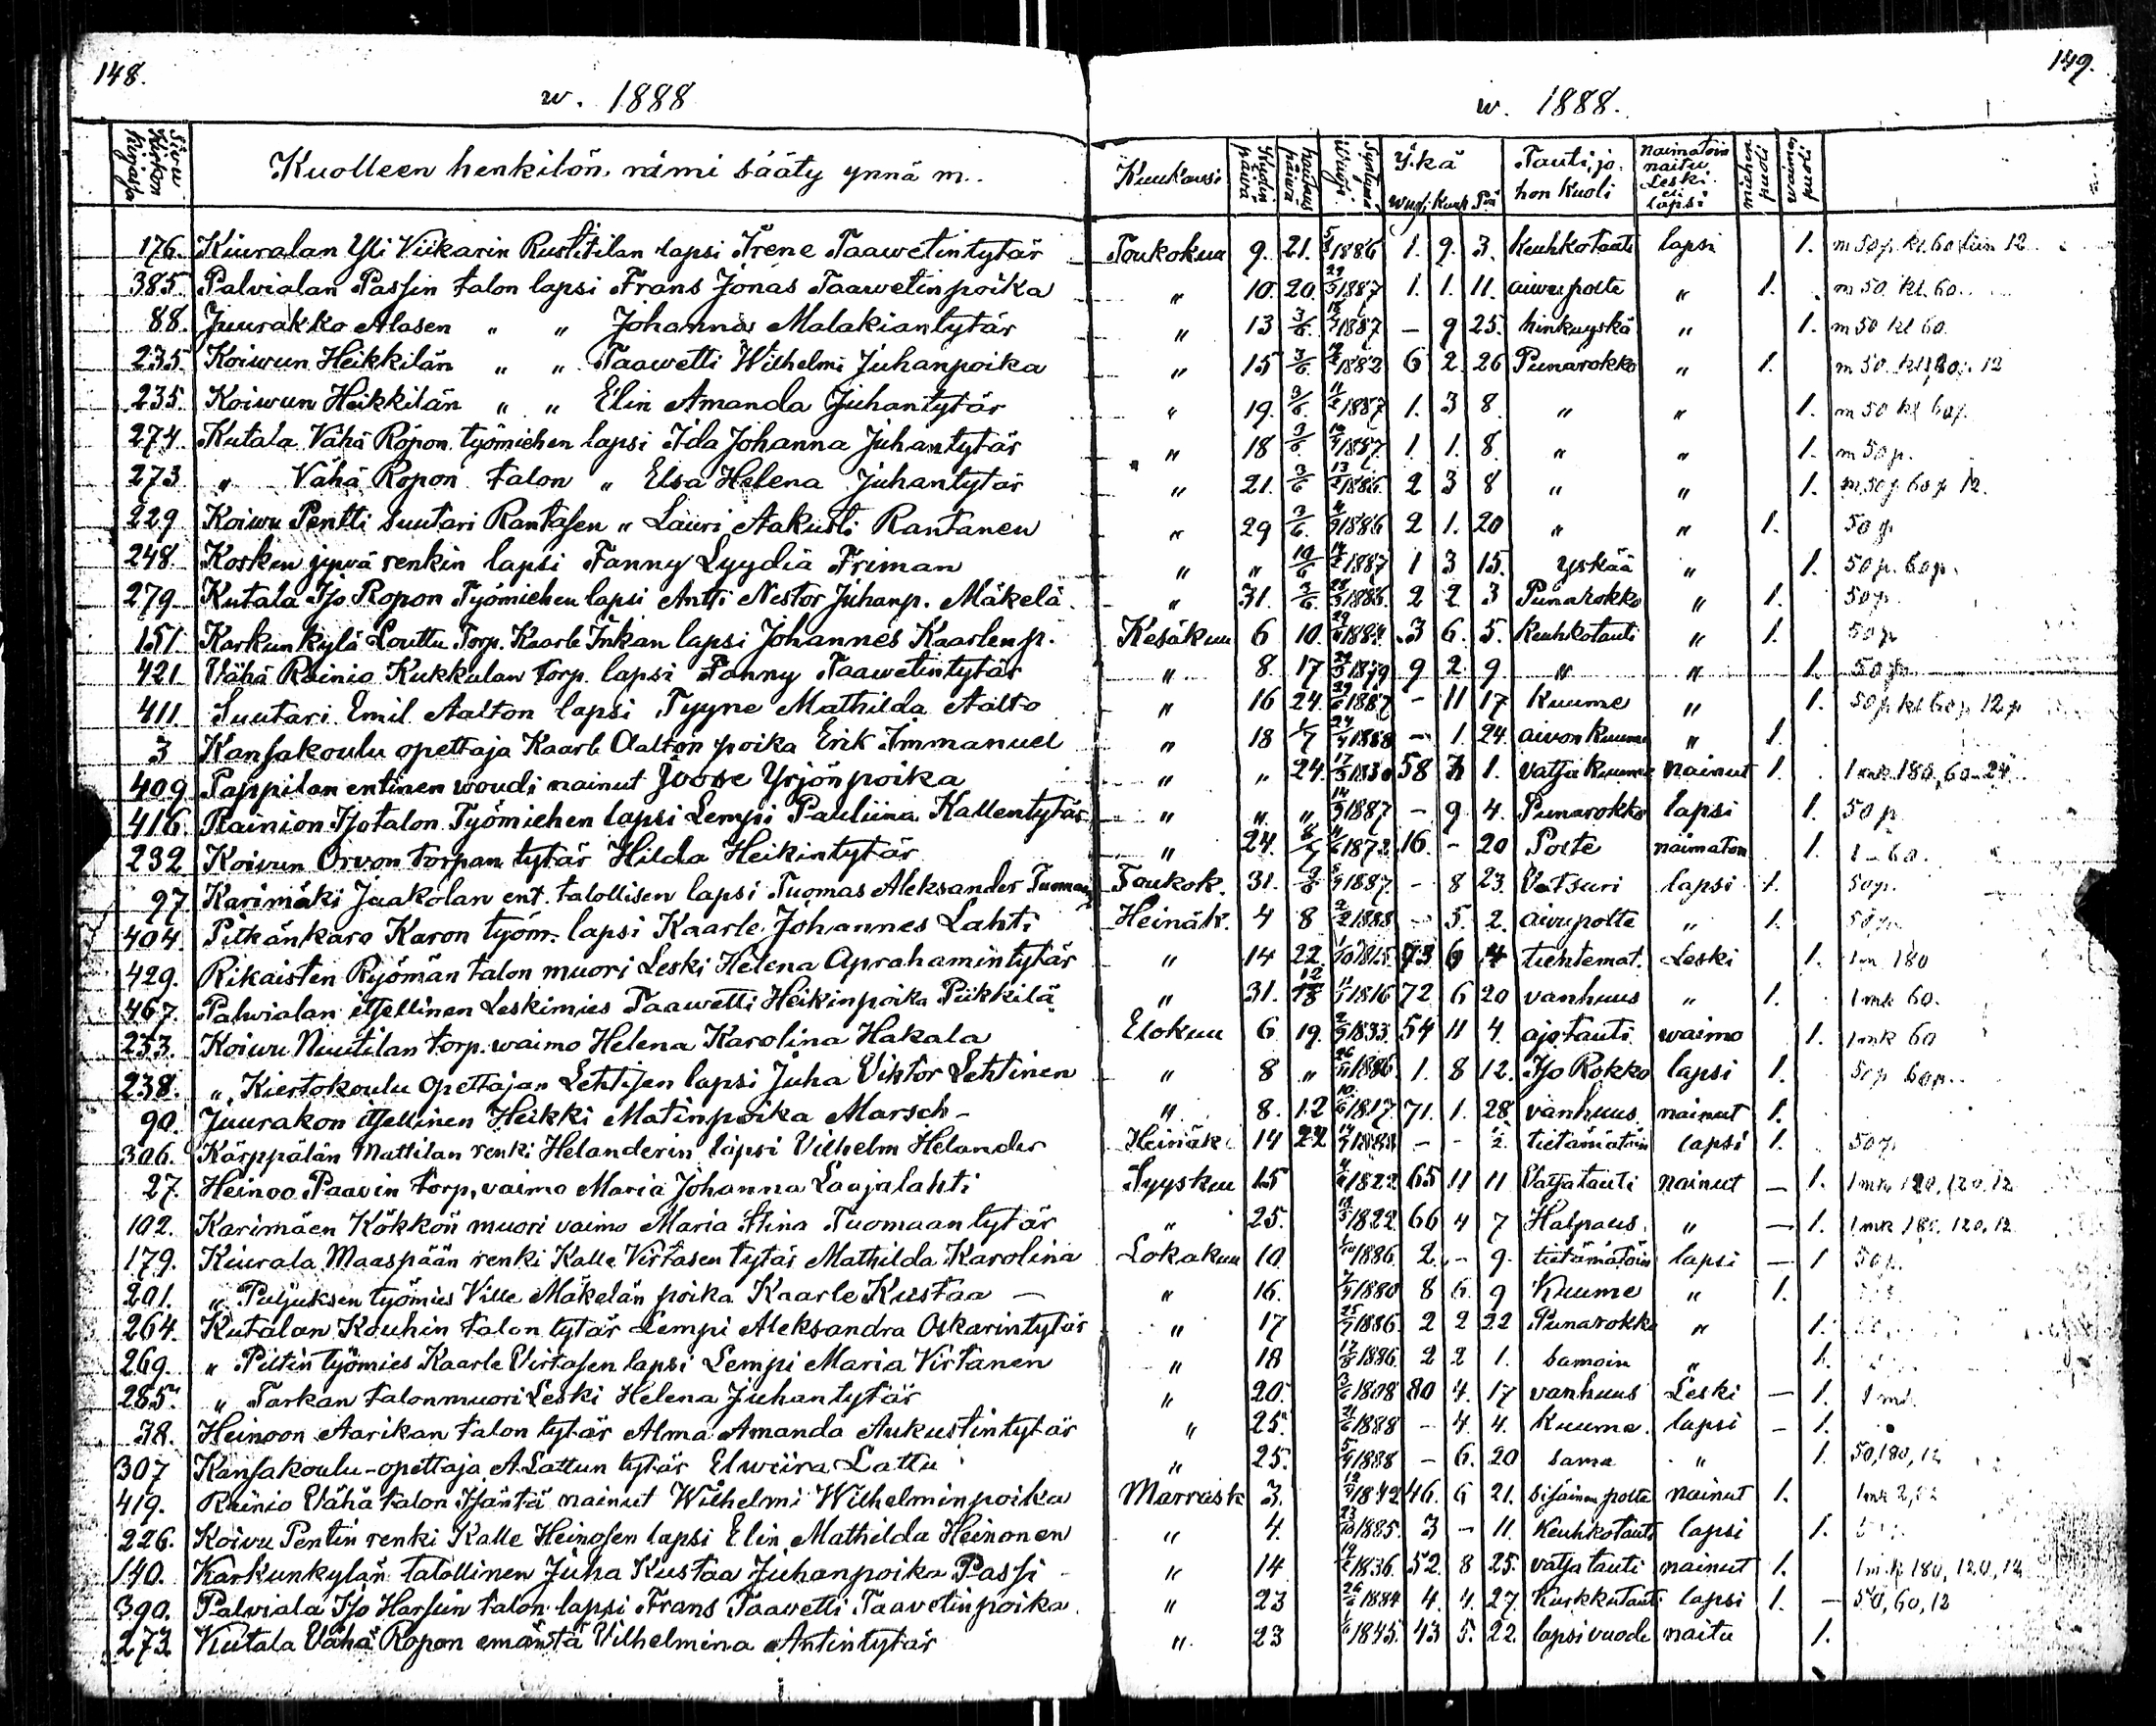 148.
w. 1888
Sivu Kirkon kirjassa
Kuolleen henkilön nimi sääty ynnä m.
176. Kiuralan Yli Viikarin Rustitilan lapsi Irene Taawetintytär
385. Palvialan Passin talon lapsi Frans Jonas Taawetinpoika
88. Juurakko Alasen " " Johanna Malakiantytär
235. Koiwun Heikkilän " " Taawetti Wilhelmi Juhanpoika
235. Koiwun Heikkilän " " Elin Amanda Juhantytär
274. Kutala Vähä Ropon työmiehen lapsi Ida Johanna Juhantytär
273 " Vähä Ropon talon " Elsa Helena Juhantytär
229 Koiwu Pentti Suutari Rantasen " Lauri Aakusti Rantanen
248. Kosken jyvä renkin lapsi Fanny Lyydia Friman
279 Kutala Iso Ropon Työmiehen lapsi Antti Nestor Juhanp. Mäkelä
151. Karkunkylä Louttu Torp. Kaarle Inkan lapsi Johannes Kaarlenp.
421 Vähä Rainio Kukkulan torp. lapsi Fanny Taawetintytär
411 Suutari Emil Aalton lapsi Tyyne Mathilda Aalto
3 Kansakoulu opettaja Kaarl Aalton poika Erik Immanuel
409 Pappilan entinen woudi nainut Joose Yrjönpoika
416. Rainion Isotalon Työmiehen lapsi Lempi Pauliina Kallentytär
232 Koivun Orvon torpan tytär Hilda Heikintytär
97. Karimäki Jaakolan ent. talollisen lapsi Tuomas Aleksander
404. Pitkänkaro Karon työm. lapsi Kaarle Johannes Lahti
429. Rikaisten Ryömän talon muori Leski Helena Aprahamintytär
467. Palvialan itsellinen Leskimies Taawetti Heikinpoika Piikkilä
233. Koiwu Nuutilan torp. waimo Helena Karolina Hakala
238. " Kiertokoulu opettajan Lehtisen lapsi Juha Viktor Lehtinen
90. Juurakon itsellinen Heikki Matinpoika Marsch -
306. Kärppälän Mattilan renki Helanderin lapsi Vilhelm Helander
27. Heinoo Paavin torp. vaimo Maria Johanna Laajalahti
102. Karimäen Kökkön muori vaimo Maria Stina Tuomaan tytär
179. Kiurala Maaspään renki Kalle Virtasen tytär Mathilda Karolina
201. " Puljuksen työmies Ville Mäkelän poika Kaarle Kustaa -
264. Kutalan Kouhin talon tytär Lempi Aleksandra Oskarintytär
269. " Pitin työmies Kaarle Virtasen lapsi Lempi Maria Virtanen
285. " Tarkan talonmuori Leski Helena Juhantytär
38. Heinoon Aarikan talon tytär Alma Amanda Aukustintytär
307 Kansakoulu-opettaja A. Lattun tytär Elwiira Lattu
419. Rainio Vähätalon Isäntä nainut Wilhelmi Wilhelminpoika
226. Koivu Pentin renki Kalle Heinosen lapsi Elin Mathilda Heinonen
140. Karkunkylän talollinen Juha Kustaa Juhanpoika Passi
390. Palviala Iso Harsun talon lapsi Frans Taavetti Taavetinpoika
273 Kutala Vähä Ropon emäntä Vilhelmina Antintytär
149.
w. 1888.
Kuukausi Ikä Wuo. Kuuk. Päi Tauti, johon Kuoli naimatoin naitu Leski eli lapsi miehen puoli vaimo puoli
Toukokuu 9. 21. 1886 1. 9. 3. Keuhkotauti lapsi 1. m 50 p. kl. 60 12
" 10. 20. 1887 1. 1. 11. aiwupolte " 1. m 50. kl. 60.
" 13 3/6 1887 - 9 25. hinkuyskä " 1. m 50 kl 60.
" 15 3/6 1882 6 2 26 Punarokko " 1. m 50 12
" 19. 3/6 1887 1. 3 8. " " 1. m 50 kl 60p.
" 18 3/6 1887. 1 1. 8. " " 1. m 50p.
" 21. 3/6 1886. 2 3 8 " " 1. m 50 p 60 p 12.
" 29 3/6 1886 2 1. 20 " " 1. 50 p.
" " 10/6 1887 1 3 15. yskää " 1. 50 p. 60 p.
" 31. 3/6 1886. 2 2 3 Punarokko " 1. 50p.
Kesäkuu 6 10. 1884. 3 6. 5. keuhkotauti " 1. 50 p
" 8. 17 1879 9 2 9. " " 1. 50 p.
" 16 24. 1887 - 11 17 Kuume " 1. 50 p kl 60 p 12 p
" 18 1/7 1888 - 1. 24. aivon kuume " 1.
" " 24. 1830 58 3 1. vatsa kuume nainut 1. 1 mk 180, 60 24
" " " 1887 - 9 4. Punarokko lapsi 1. 50 p
" 24. 8/7 1872 16. - 20 Polte naimaton 1. 1 - 60.
Toukok. 31. 1887. - 8 23. Vatsuri lapsi 1. 50p.
Heinäk. 4 8 2/2 1888 - 5. 2. aivupolte " 1. 50p.
" 14 22. 1815. 73 6 4 tuntemat. Leski 1. 1m 180
" 31. 12/8 1816 72 6 20 vanhuus " 1. 1 mk 60.
Elokuu 6 19. 2/9 1833. 54 11 4. ajotauti waimo 1. 1 mk 60
" 8 " 1886. 1. 8 12. Iso Rokko lapsi 1. 50 p 60 p.
" 8. 12 1817. 71. 1. 28. vanhuus. nainut 1.
Heinäk. 14 22 1888 - - 1/2. tietämätöin lapsi 1. 50 p.
Syyskuu 15 1822 65 11 11 Vatsatauti nainut - 1. 1 mk 120, 120, 12
" 25. 1822. 66 4 7 Halpaus. " - 1. 1 mk 180, 120, 12
Lokakuu 10. 1886. 2 - 9. tietämätöin lapsi - 1 50 p.
" 16. 1880 8 6. 9 Kuume " 1.
" 17 1886. 2 2 22 Punarokko " 1.
" 18 1886. 2 2 1. samoin " 1.
" 20. 3/6 1808 80 4. 17 vanhuus Leski - 1. 1 mk.
" 25. 21/6 1888 - 4 4. kuume. lapsi - 1.
" 25. 5/4 1888 - 6. 20 sama " 1. 50, 180, 12
Marrask 3. 1842 46. 6 21. sisäinen polte nainut 1. 1 mk
" 4. 23/10 1885. 3 - 11. Keuhkotauti lapsi 1.
" 14 1836. 52. 8 25. vatsa tauti nainut 1. 1 mk 180, 120, 12
" 23 26/6 1884 4. 4. 27. Kurkkutauti lapsi 1. - 50, 60, 12
" 23 1/6 1845. 43 5. 22. lapsivuode naitu 1.